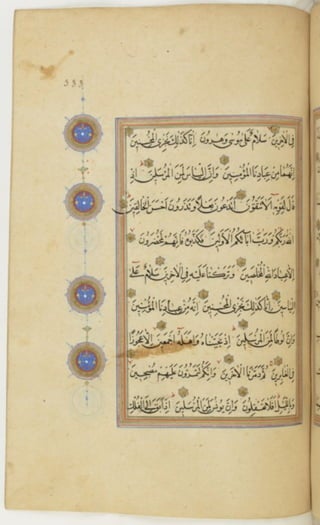 في الاخرين سلام على موسى وهرون انا كذلك نجزي المحسنين
انهما من عبادنا المؤمنين وان الياس لمن المرسلين اذ
قال لقومه الا تتقون اتدعون بعلا وتذرون احسن الخالقين
الله ربكم ورب ابائكم الاولين فكذبوه فانهم لمحضرون
الا عباد الله المخلصين وتركنا عليه في الاخرين سلام على
الياسين انا كذلك نجزي المحسنين انه من عبادنا المؤمنين
وان لوطا لمن المرسلين اذ نجيناه واهله اجمعين الا عجوزا
في الغابرين ثم دمرنا الاخرين وانكم لتمرون عليهم مصبحين
وبالليل افلا تعقلون وان يونس لمن المرسلين اذ ابق الى الفلك